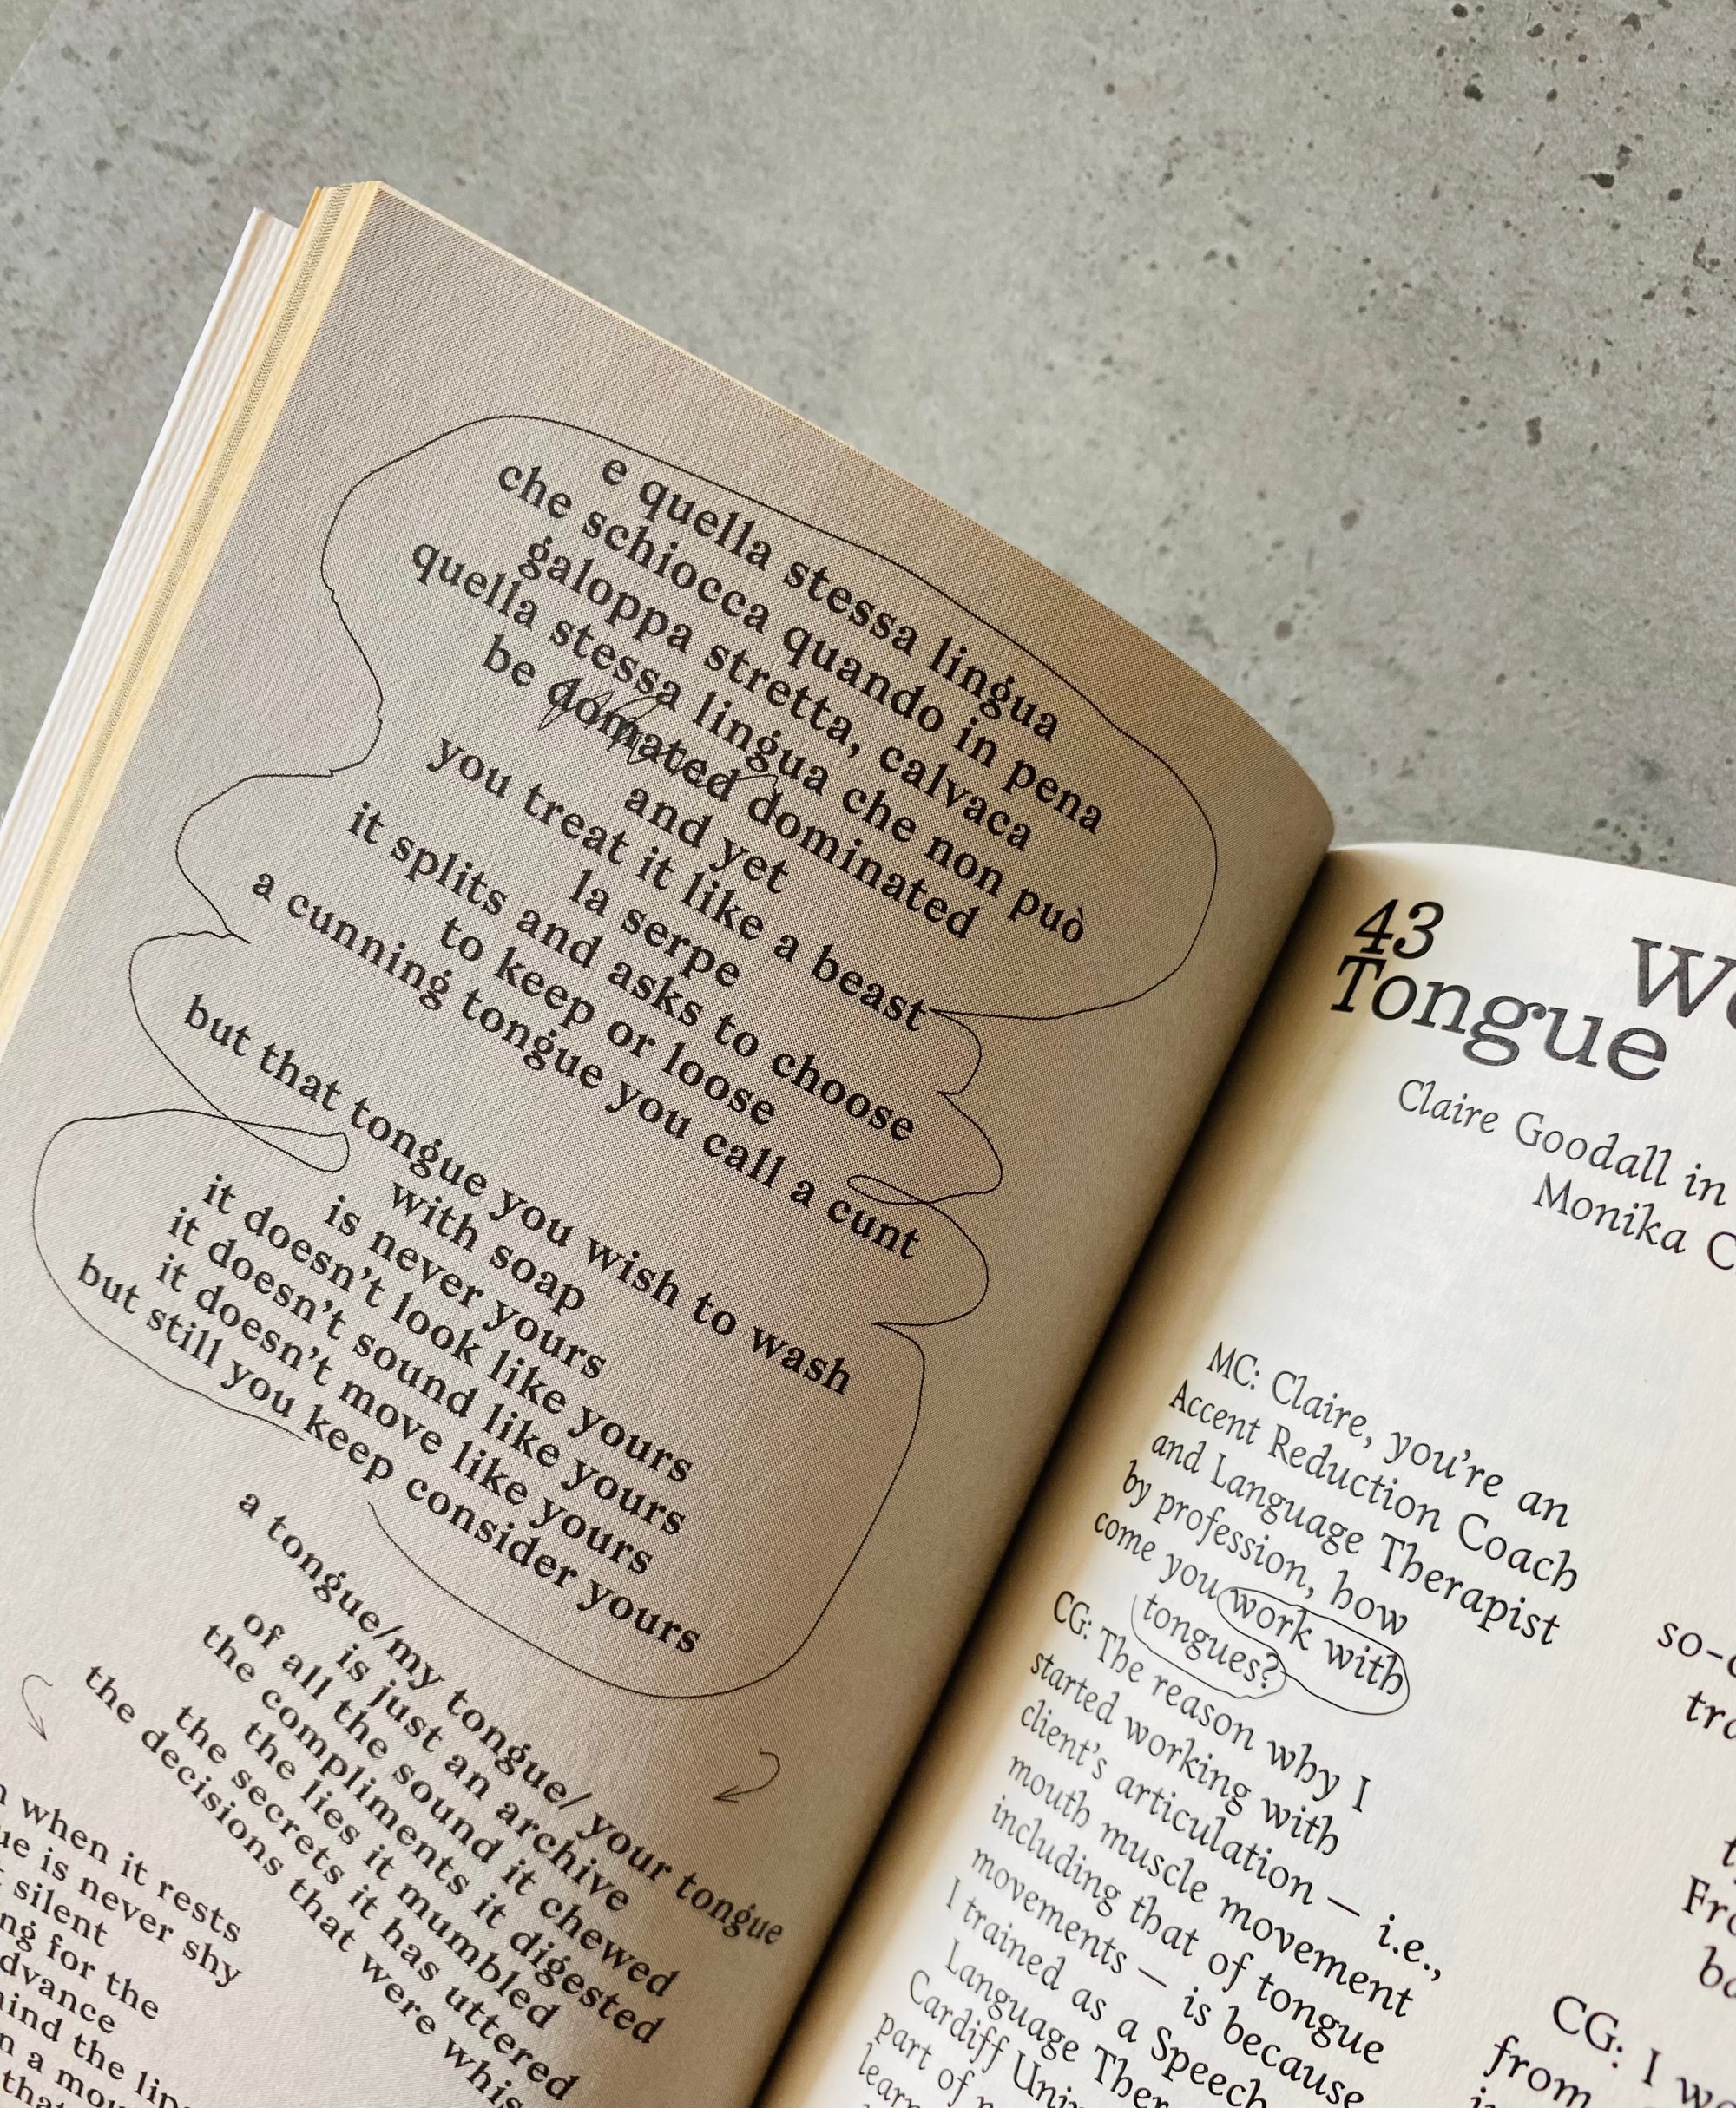 e quella stessa lingua
che schiocca quando in pena
galoppa stretta, calvaca
quella stessa lingua che non può
be domated dominated
and yet
you treat it like a beast
la serpe
it splits and asks to choose
to keep or loose
a cunning tongue you call a cunt
but that tongue you wish to wash
with soap
is never yours
it doesn't look like yours
it doesn't sound like yours
it doesn't move like yours
but still you keep consider yours
a tongue/my tongue/ your tongue
is just an archive
of all the sound it chewed
the compliments it digested
the lies it mumbled
the secrets it has uttered
the decisions that were whis
when it rests
is never shy
silent
for the
dvance
the
a
43
Tongue
Claire Goodall in
Monika C
MC: Claire, you're an
Accent Reduction Coach
and Language Therapist
by profession, how
come you work with
tongues?
CG: The reason why I
started working with
client's articulation — i.e.,
mouth muscle movement
including that of tongue
movements — is because
I trained as a Speech
Language Ther
Cardiff Uni
part of
learn
so-
tra
Fro
CG: I w
from